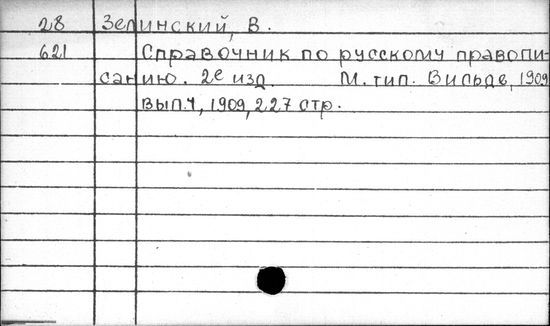 28 Зелинский, В.
621 Справочник по русскому правопи-
санию. 2е изд. М. тип. Вильде, 1909
вып. 1, 1909, 227 стр.